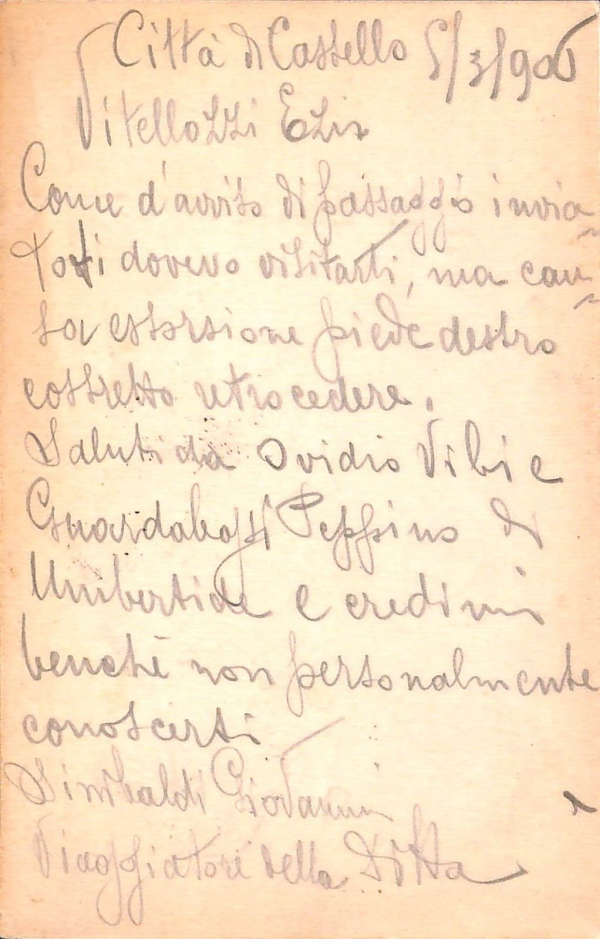 Città di Castello 5/3/906
Vitellozzi Ezio
Come d'avviso di passaggio invia
toti dovevo visitarti, ma cau
sa estorsione piede destro
costretto retrocedere.
Saluti da Ovidio Vibi e
Guardabassi Peppino di
Umbertide e credimi
benchè non personalmente
conoscerti
Sinibaldi Giovanni
Viaggiatore della Ditta